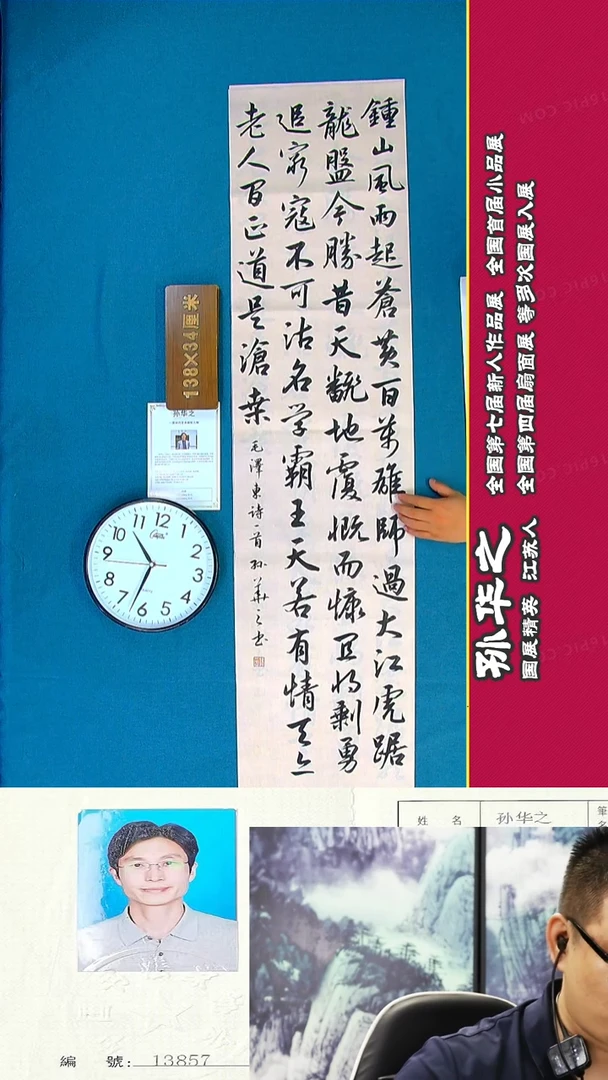 鍾山風雨起蒼黃百萬雄師過大江虎踞
龍盤今勝昔天翻地覆慨而慷宜将剩勇
追窮寇不可沽名学霸王天若有情天亦
老人間正道是滄桑
毛澤東詩一首孫華之书
138×34厘米
孙华之
12
1
2
3
4
5
6
7
8
9
10
11
孙华之
国展精英 江苏人
全国第七届新人作品展 全国首届小品展
全国第四届扇面展 等多次国展入展
姓 名 孙华之 筆
編 號: 13857